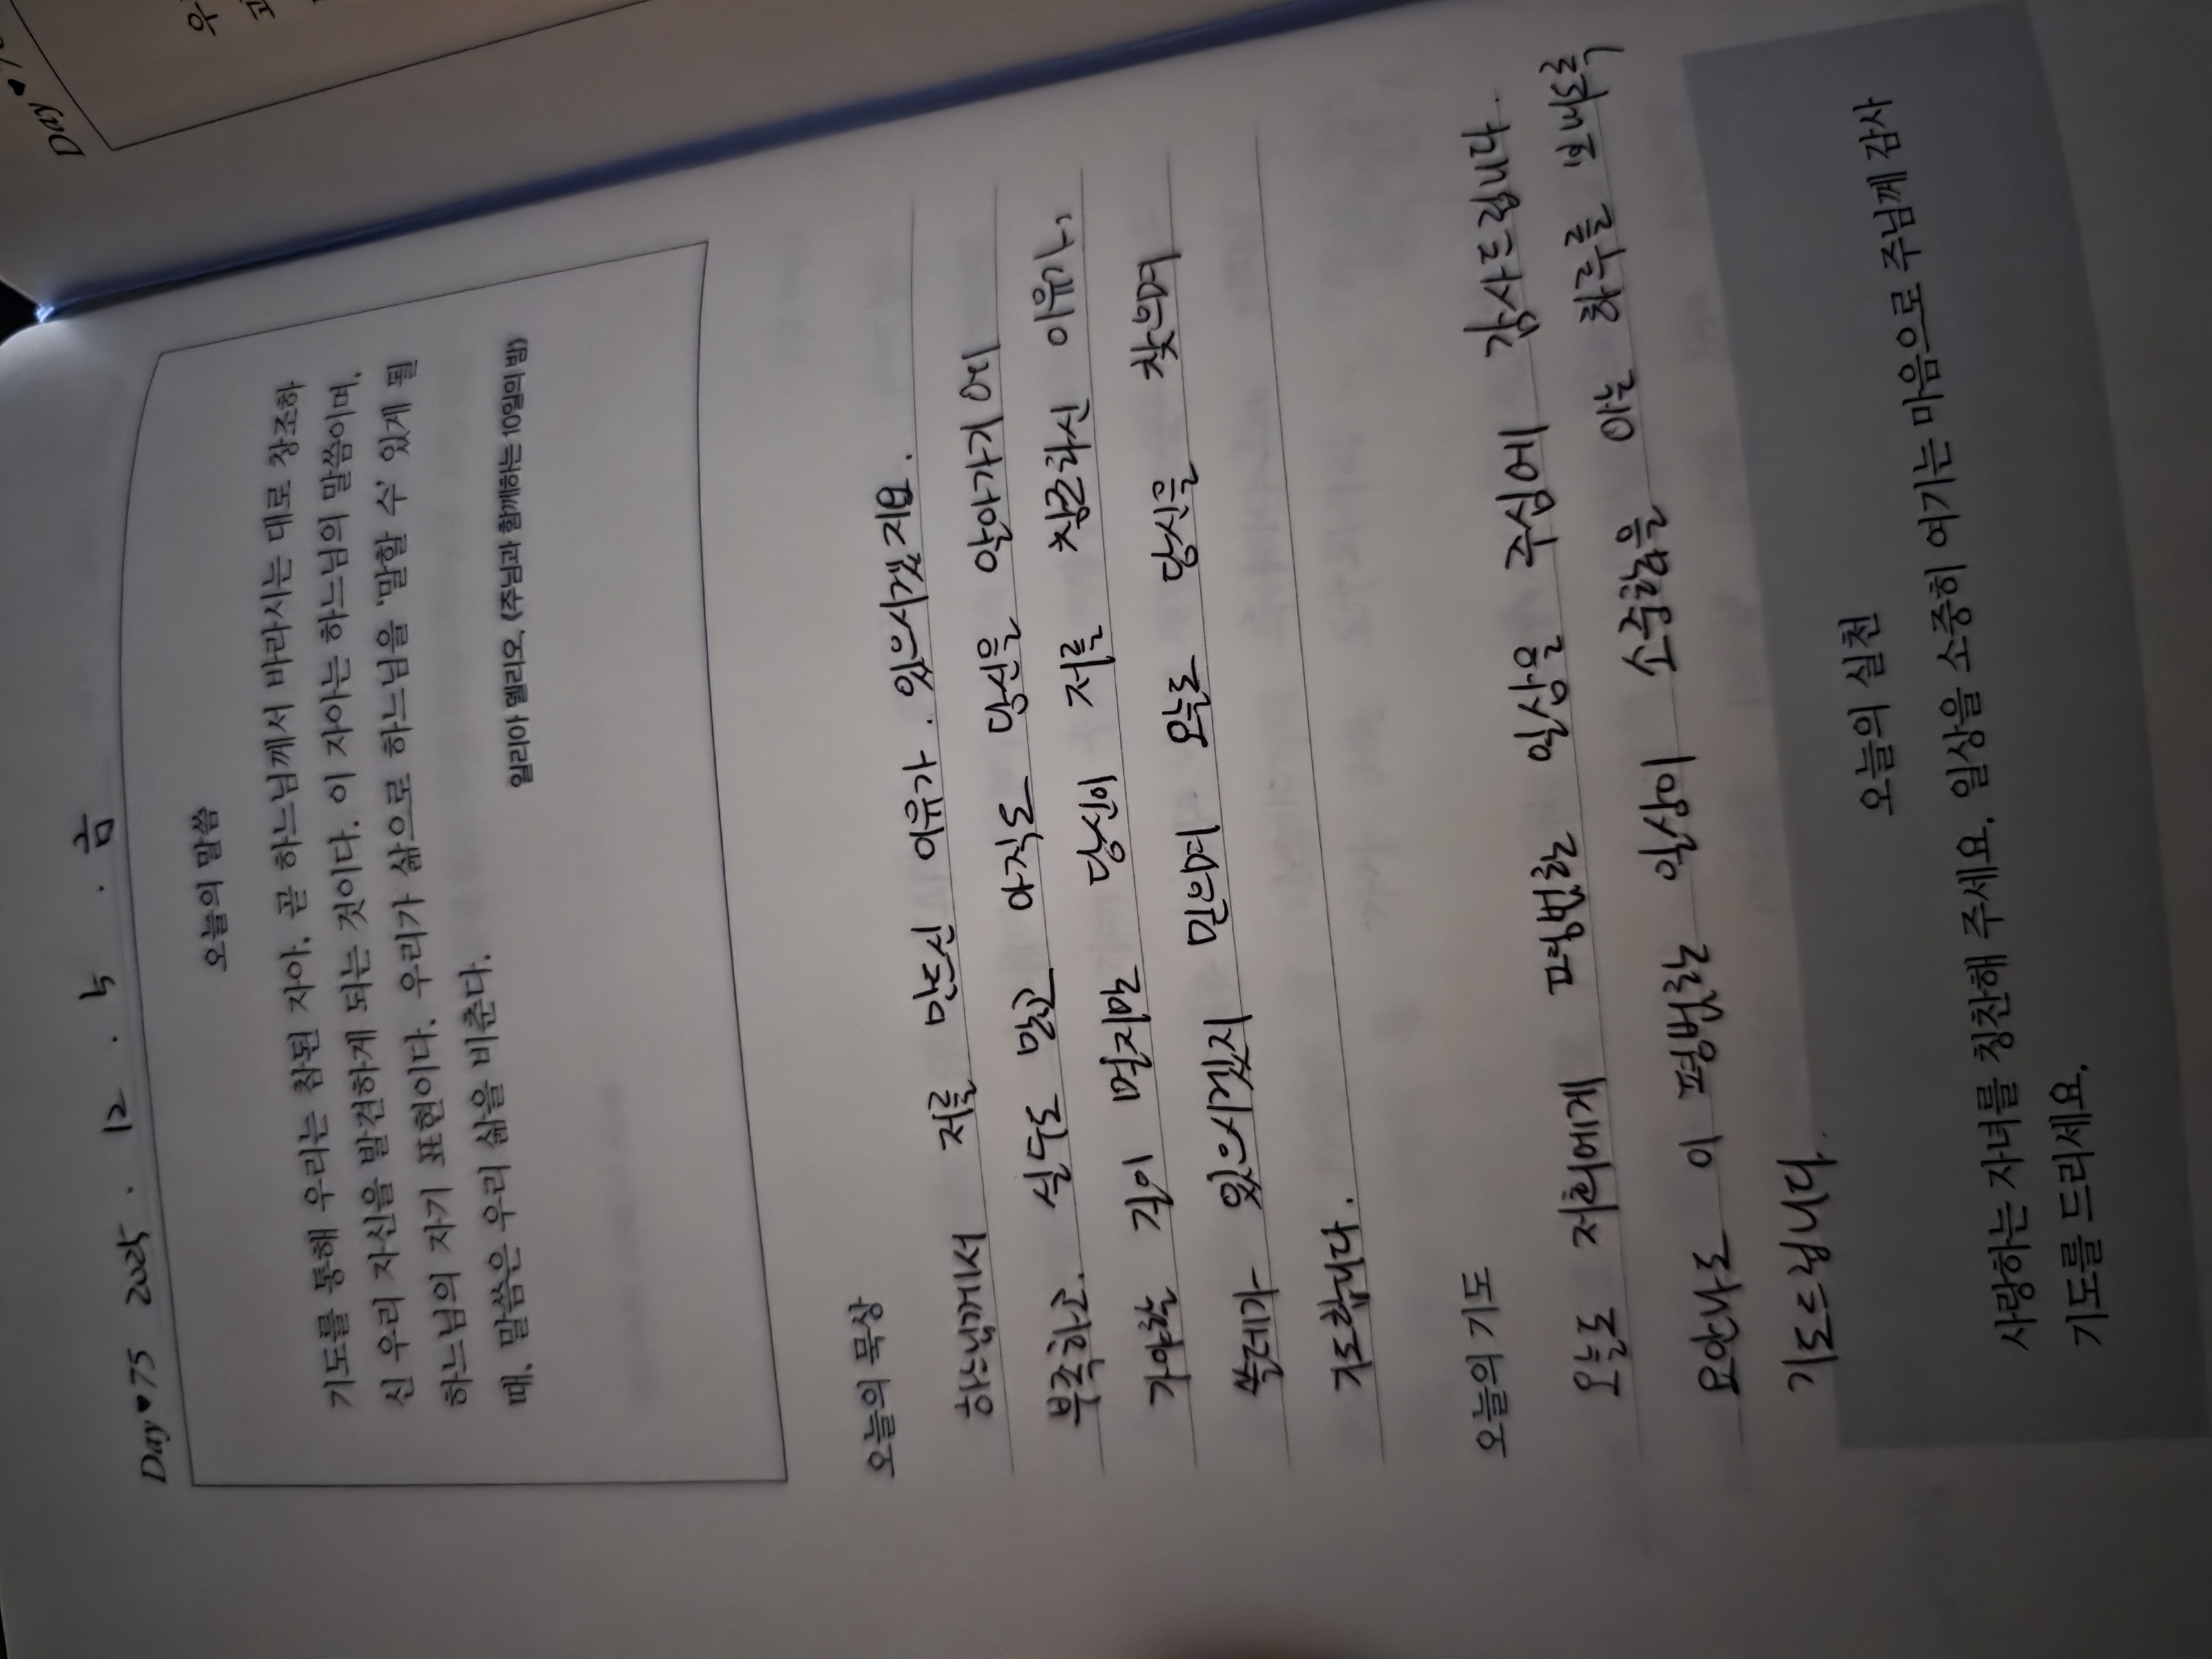 Day♥75 2025 . 12 . 5 . 금
오늘의 말씀
기도를 통해 우리는 참된 자아, 곧 하느님께서 바라시는 대로 창조하
신 우리 자신을 발견하게 되는 것이다. 이 자아는 하느님의 말씀이며,
하느님의 자기 표현이다. 우리가 삶으로 하느님을 '말할 수' 있게 될
때, 말씀은 우리 삶을 비춘다.
일리아 델리오, 《주님과 함께하는 10일의 밤》
오늘의 묵상
하느님께서 저를 만드신 이유가. 있으시겠지요.
부족하고. 실수도 많고 아직도 당신을 알아가기에
가야할 길이 멀지만 당신이 저를 창조하신 이유가,
쓸데가 있으시겠지 믿으며 오늘도 당신을 찾으며
기도합니다.
오늘의 기도
오늘도 저희에게 평범한 일상을 주심에 감사드립니다.
요안나도 이 평범한 일상이 소중함을 아는 하루를 보내도록
기도드립니다.
오늘의 실천
사랑하는 자녀를 칭찬해 주세요. 일상을 소중히 여기는 마음으로 주님께 감사
기도를 드리세요.
Day♥